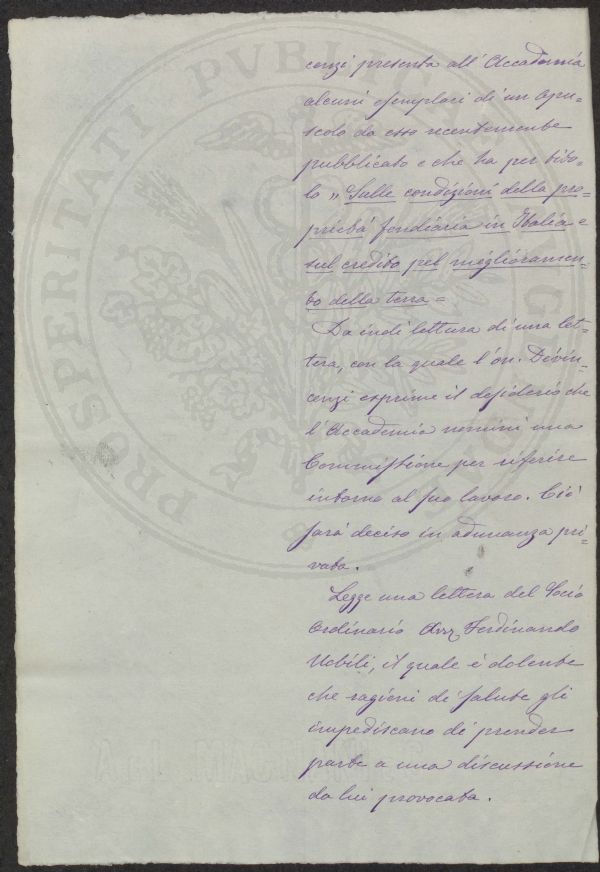 cenzi presenta all'Accademia
alcuni esemplari di un opu=
scolo da esso recentemente
pubblicato e che ha per tito=
lo „ Sulle condizioni della pro=
prietà fondiaria in Italia e
sul credito pel miglioramen=
to della terra =
Da indi lettura di una let=
tera, con la quale l'on. Devin=
cenzi esprime il desiderio che
l'Accademia nomini una
Commissione per riferire
intorno al suo lavoro. Ciò
sarà deciso in adunanza pri=
vata.
Legge una lettera del Socio
Ordinario Avv. Ferdinando
Nobili, il quale è dolente
che ragioni di salute gli
impediscano di prender
parte a una discussione
da lui provocata.
PROSPERITATI PVBLICAE